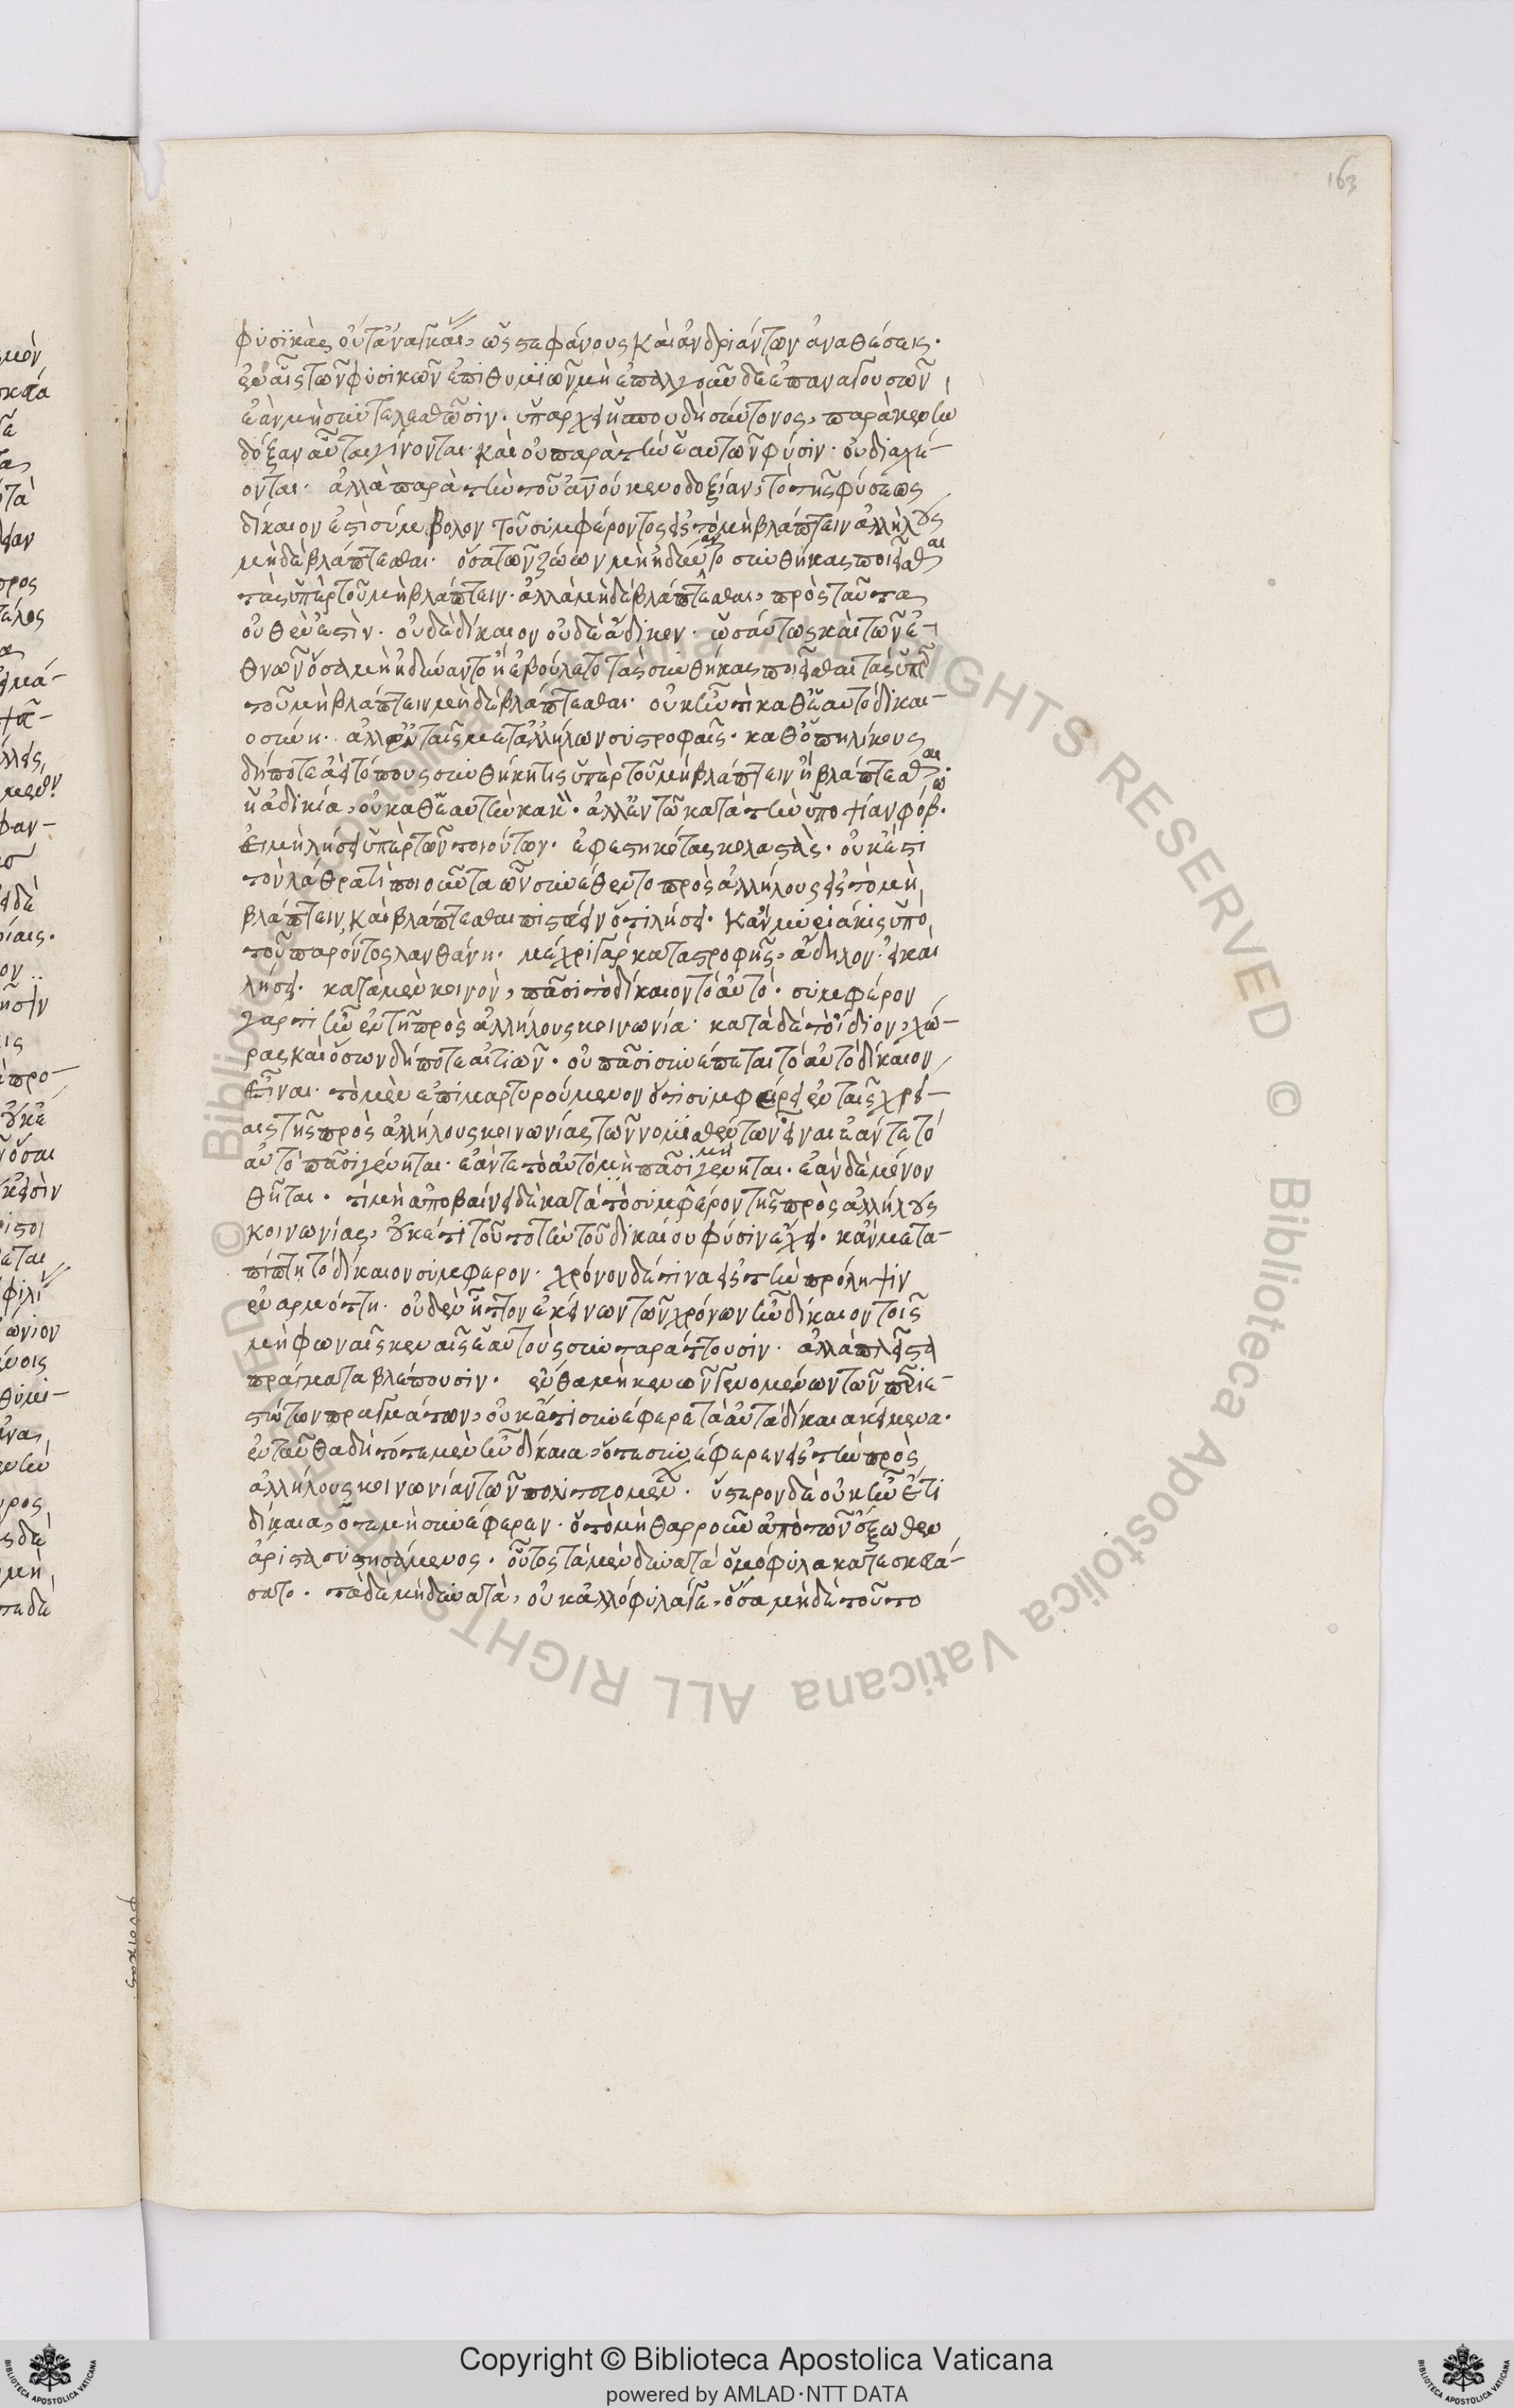 163
φυσικὰς οὔτ' ἀναγκαί, ὡς στεφάνους καὶ ἀνδριάντων ἀναθέσεις.
ἐν αἷς τῶν φυσικῶν ἐπιθυμιῶν μὴ ἐπ' ἀλγοῦν δὲ ἐπαναγουσῶν,
ἐὰν μὴ συντελεσθῶσιν. ὑπάρχει ἡ σπουδὴ σύντονος, παρὰ κενὴν
δόξαν αὗται γίνονται. καὶ οὐ παρὰ τὴν ἑαυτῶν φύσιν. οὐ διαχέ-
ονται. ἀλλὰ παρὰ τὴν τοῦ ἀνου κενοδοξίαν, τὸ τῆς φύσεως
δίκαιον ἐστὶ σύμβολον τοῦ συμφέροντος εἰς τὸ μὴ βλάπτειν ἀλλήλους
μὴ δὲ βλάπτεσθαι. ὅσα τῶν ζώων μὴ ἠδύνατο συνθήκας ποιεῖσθαι
τὰς ὑπὲρ τοῦ μὴ βλάπτειν. ἀλλὰ μὴ δὲ βλάπτεσθαι, πρὸς ταῦτα
οὐθὲν ἐστὶν. οὐδὲ δίκαιον οὐδὲ ἄδικον. ὡσαύτως καὶ τῶν ἐ-
θνῶν ὅσα μὴ ἠδύναντο ἢ ἐβούλετο τὰς συνθήκας ποιεῖσθαι τὰς ὑπὲρ
τοῦ μὴ βλάπτειν μὴ δὲ βλάπτεσθαι. οὐκ ἦν τι καθ' ἑαυτὸ δικαι-
οσύνη. ἀλλ' ἐν ταῖς μετ' ἀλλήλων συστροφαῖς. καθ' ὁπηλίκους
δήποτε ἀεὶ τόπους συνθήκη τις ὑπὲρ τοῦ μὴ βλάπτειν ἢ βλάπτεσθαι.
ἡ ἀδικία, οὐ καθ' ἑαυτὴν κακὸν. ἀλλ' ἐν τῷ κατὰ τὴν ὑποψίαν φόβω.
εἰ μὴ λήσει ὑπὲρ τῶν ποιούτων. ἐφεστηκότας κολαστὰς. οὐκ ἔστι
τὸν λάθρα τὶ ποιοῦντα ὧν συνέθεντο πρὸς ἀλλήλους εἰς τὸ μὴ
βλάπτειν, καὶ βλάπτεσθαι πιστεύειν ὅτι λήσει. κἂν μυριάκις ὑπὸ
τοῦ παρόντος λανθάνη. μέχρι γὰρ καταστροφῆς, ἄδηλον. εἰ καὶ
λήσει. κατὰ μὲν κοινὸν, πᾶσι τὸ δίκαιον τὸ αὐτό. συμφέρον
γάρ τι ἦν ἐν τῇ πρὸς ἀλλήλους κοινωνία. κατὰ δὲ τὸ ἴδιον, χώ-
ρας καὶ ὅσων δήποτε αἰτιῶν. οὐ πᾶσι συνέπεται τὸ αὐτὸ δίκαιον
εἶναι. τὸ μὲν ἐπιμαρτυρούμενον ὅτι συμφέρει ἐν ταῖς χρεί-
αις τῆς πρὸς ἀλλήλους κοινωνίας τῶν νομισθέντων εἶναι ἐάν τε τὸ
αὐτὸ πᾶσι γένηται. ἐάν τε τὸ αὐτὸ μὴ πᾶσι μὴ γένηται. ἐὰν δὲ μόνον
θῆται. τί μὴ ἀποβαίνει δὲ κατὰ τὸ συμφέρον τῆς πρὸς ἀλλήλους
κοινωνίας, οὐκ ἔτι τοῦτο τὴν τοῦ δικαίου φύσιν ἔχει. κἂν μετα-
πίπτη τὸ δίκαιον σύμφερον. χρόνον δέ τινα εἰς τὴν πρόληψιν
ἐναρμόττη. οὐδὲν ἧττον ἐκείνων τῶν χρόνων ἦν δίκαιον τοῖς
μὴ φωναῖς κεναῖς ἑαυτοὺς συνταράττουσιν. ἀλλὰ πλεῖστα
πράγματα βλέπουσιν. ἔνθα μὴ κενῶν γενομένων τῶν περιε-
στώτων πραγμάτων, οὐκ ἔτι συνέφερε τὰ αὐτὰ δίκαια κείμενα.
ἐνταῦθα δὴ τότε μὲν ἦν δίκαια, ὅτε συνέφερεν εἰς τὴν πρὸς
ἀλλήλους κοινωνίαν τῶν πολιτευομένων. ὕστερον δὲ οὐκ ἦν ἔτι
δίκαια, ὅτε μὴ συνέφερεν. ὁ τὸ μὴ θαρροῦν ἀπὸ τῶν ἔξωθεν
ἄριστα συστησάμενος. οὗτος τὰ μὲν δυνατὰ ὁμόφυλα κατεσκευά-
σατο. τὰ δὲ μὴ δυνατὰ, οὐκ ἀλλόφυλά γε, ὅσα μὴ δὲ τοῦτο
Copyright © Biblioteca Apostolica Vaticana
powered by AMLAD·NTT DATA